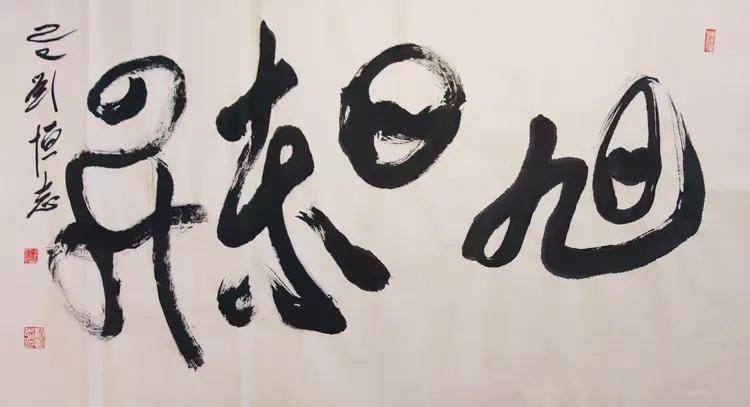 旭日东昇
己亥刘恒志